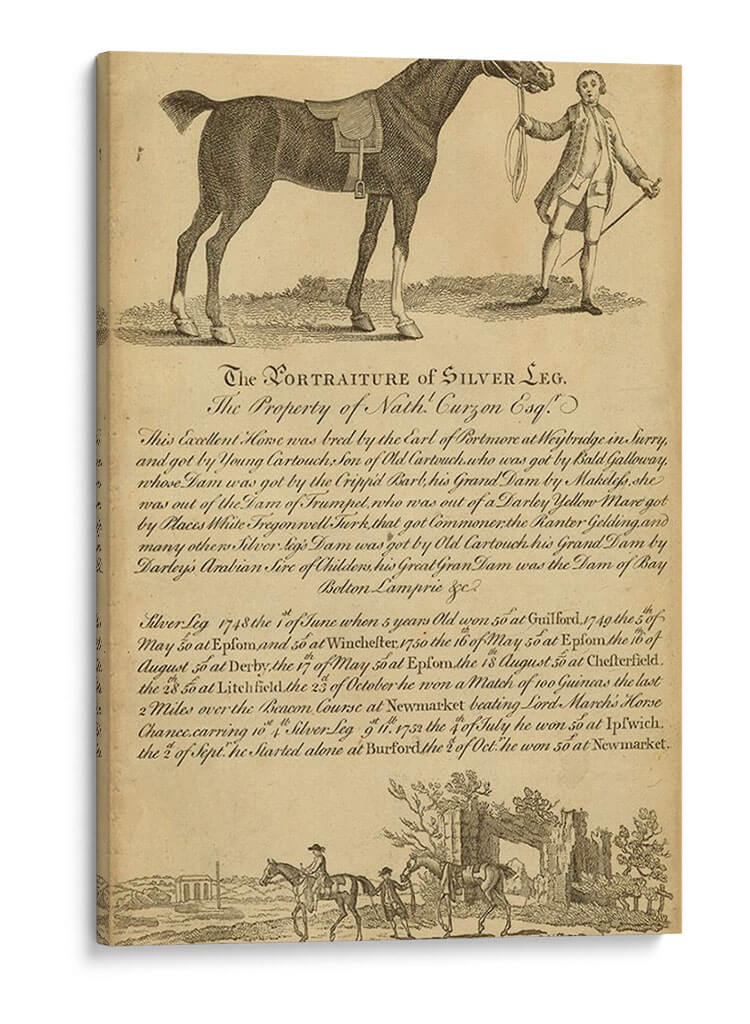 The PORTRAITURE of SILVER LEG.
The Property of Nath.l Curzon Esq.r
This Excellent Horse was bred by the Earl of Portmore at Weybridge in Surry,
and got by Young Cartouch, Son of Old Cartouch, who was got by Bald Galloway,
whose Dam was got by the Cripp'd Barb, his Grand Dam by Makeless, she
was out of the Dam of Trumpet, who was out of a Darley Yellow Mare got
by Places White Tregonwell Turk, that got Commoner, the Ranter Gelding, and
many others Silver Leg's Dam was got by Old Cartouch, his Grand Dam by
Darley's Arabian Sire of Childers, his Great Gran Dam was the Dam of Bay
Bolton Lamprie &c
Silver Leg 1748 the 1st of June when 5 years Old won 50£ at Guilford, 1749 the 5th of
May 50£ at Epsom, and 50£ at Winchester, 1750 the 16th of May 50£ at Epsom, the 16th of
August 50£ at Derby, the 17th of May 50£ at Epsom, the 18th August 50£ at Chesterfield,
the 28th 50£ at Litchfield, the 23d of October he won a Match of 100 Guineas the last
2 Miles over the Beacon Course at Newmarket beating Lord March's Horse
Chance, carring 10st 4lb Silver Leg 9st 11lb. 1752 the 4th of July he won 50£ at Ipswich.
the 2d of Sept.r he Started alone at Burford, the 2d of Oct.r he won 50£ at Newmarket.